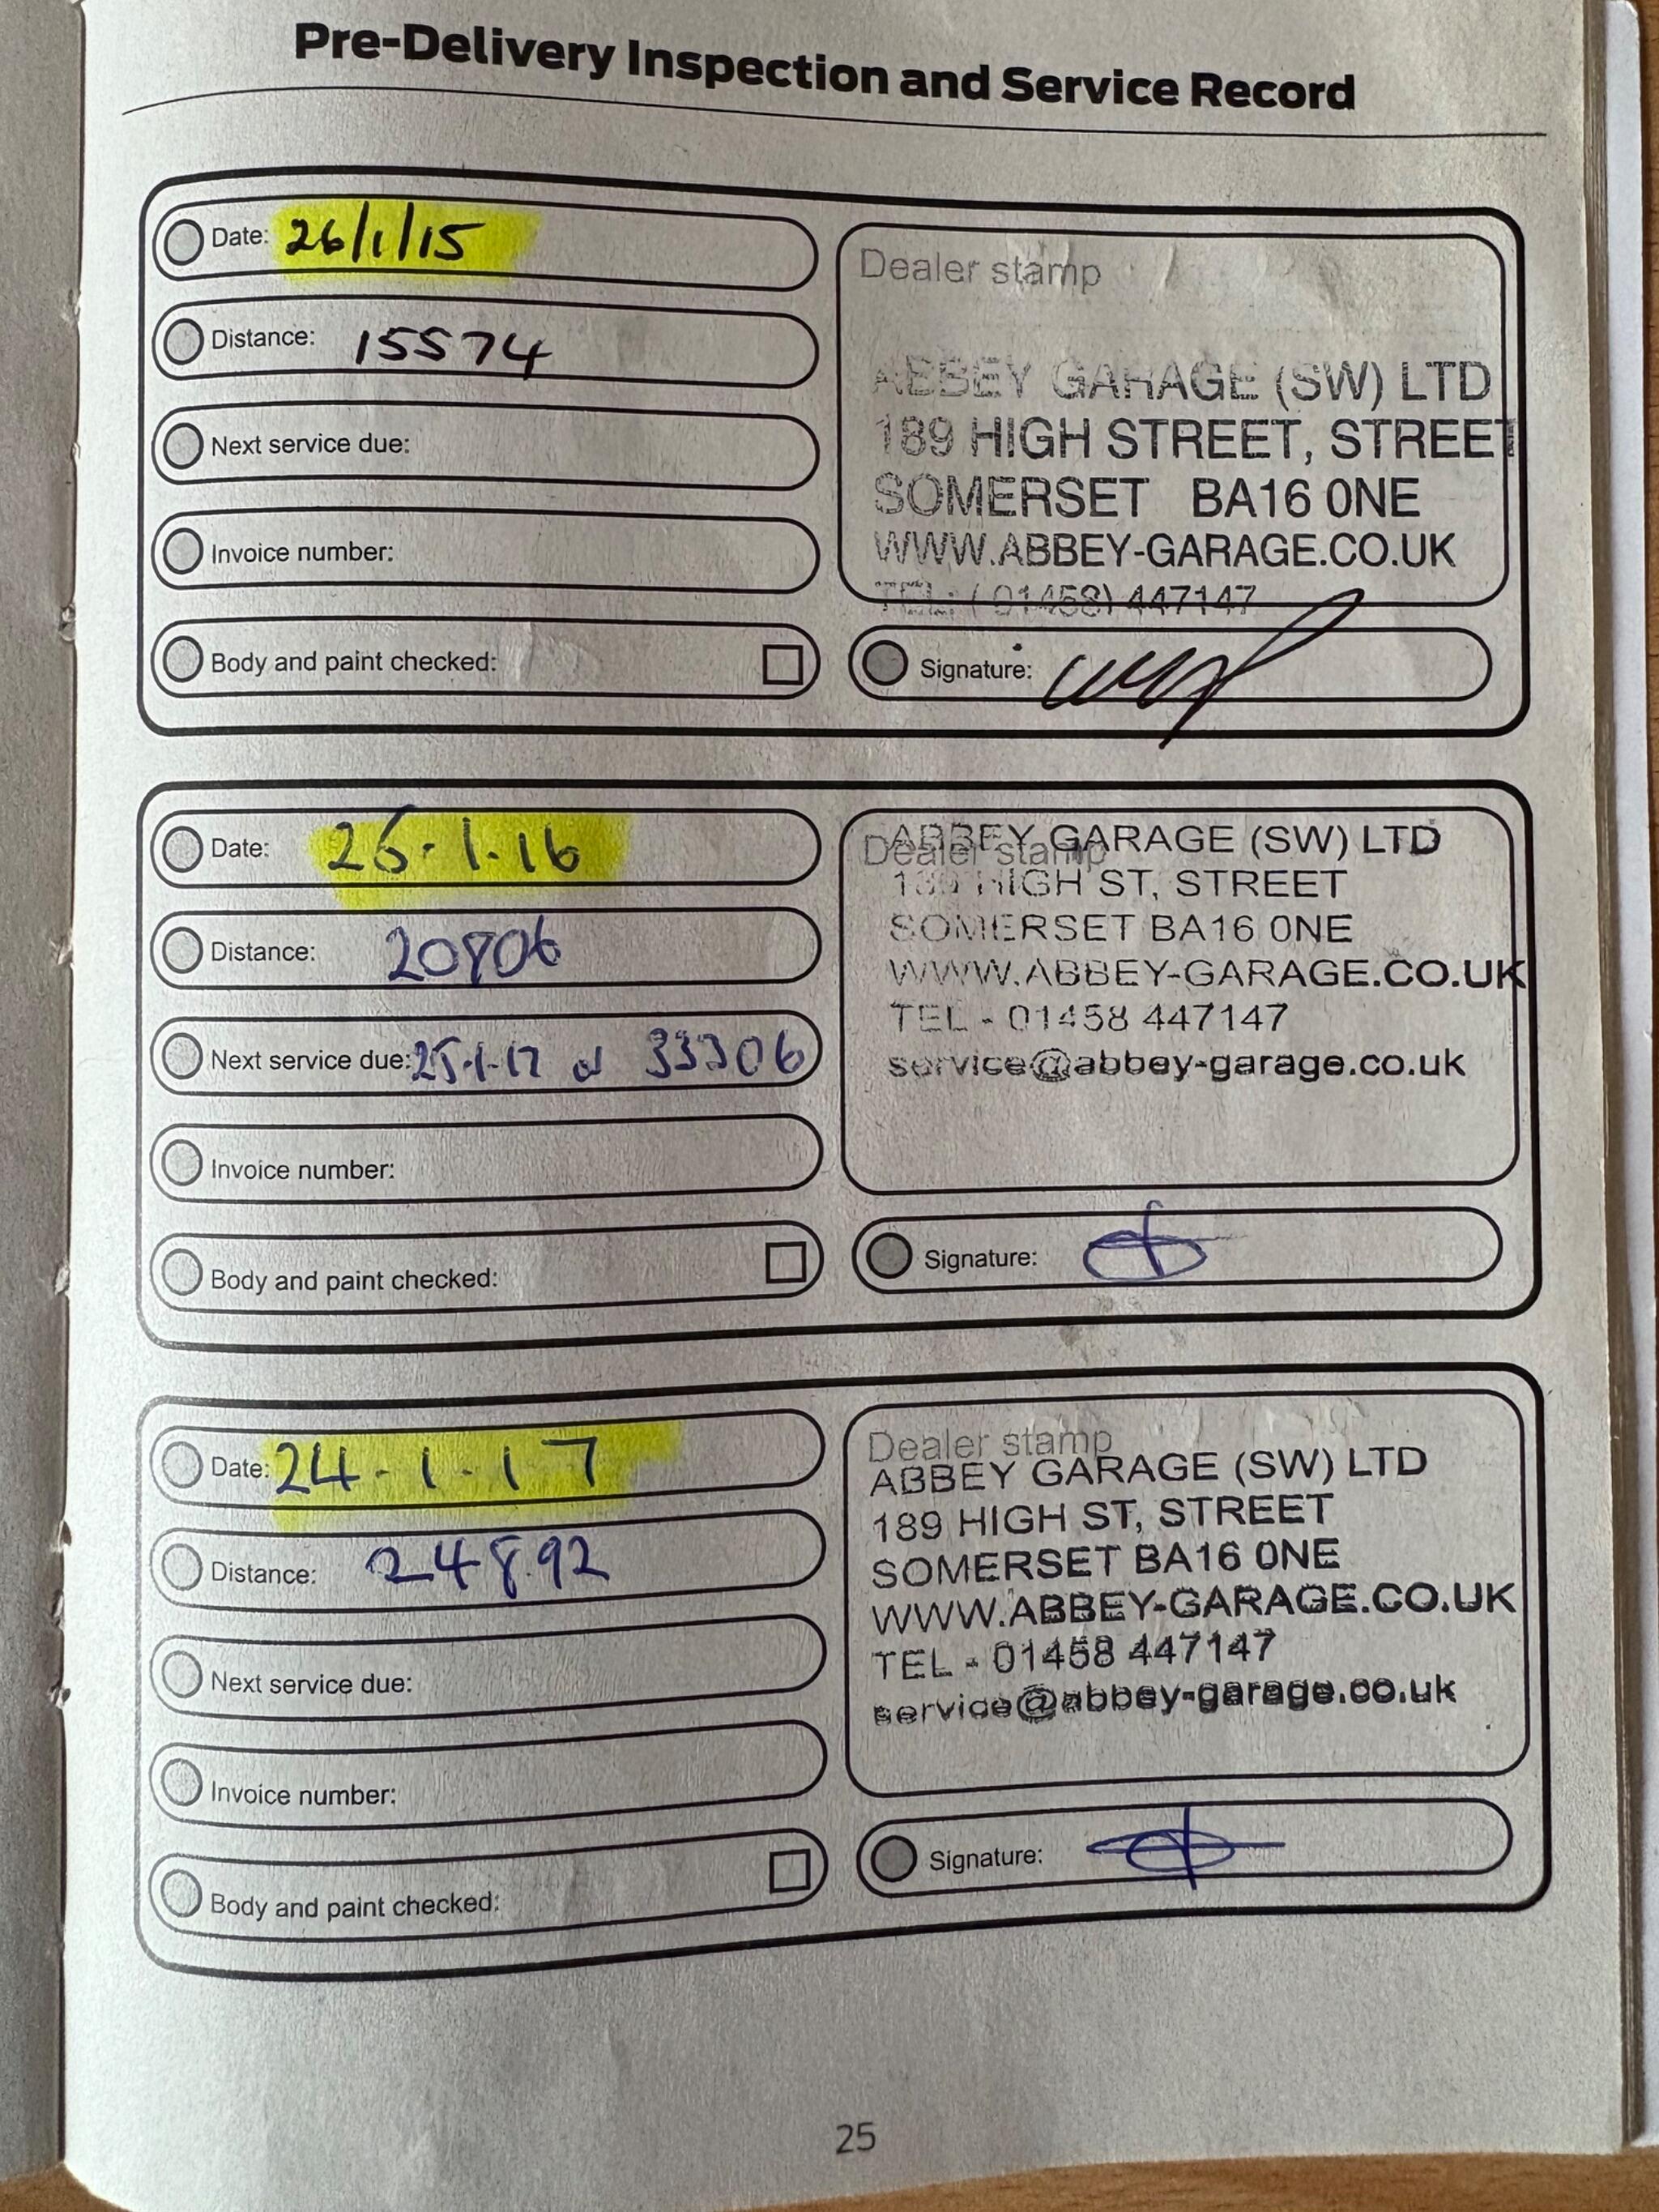 Pre-Delivery Inspection and Service Record
Date: 26/1/15
Distance: 15574
Next service due:
Invoice number:
Body and paint checked:
Dealer stamp
ABBEY GARAGE (SW) LTD
189 HIGH STREET, STREET
SOMERSET BA16 0NE
WWW.ABBEY-GARAGE.CO.UK
TEL: (01458) 447147
Signature:
Date: 25.1.16
Distance: 20806
Next service due: 25.1.17 or 33306
Invoice number:
Body and paint checked:
Dealer stamp
ABBEY GARAGE (SW) LTD
189 HIGH ST, STREET
SOMERSET BA16 0NE
WWW.ABBEY-GARAGE.CO.UK
TEL - 01458 447147
service@abbey-garage.co.uk
Signature:
Date: 24.1.17
Distance: 24892
Next service due:
Invoice number:
Body and paint checked:
Dealer stamp
ABBEY GARAGE (SW) LTD
189 HIGH ST, STREET
SOMERSET BA16 0NE
WWW.ABBEY-GARAGE.CO.UK
TEL - 01458 447147
service@abbey-garage.co.uk
Signature:
25